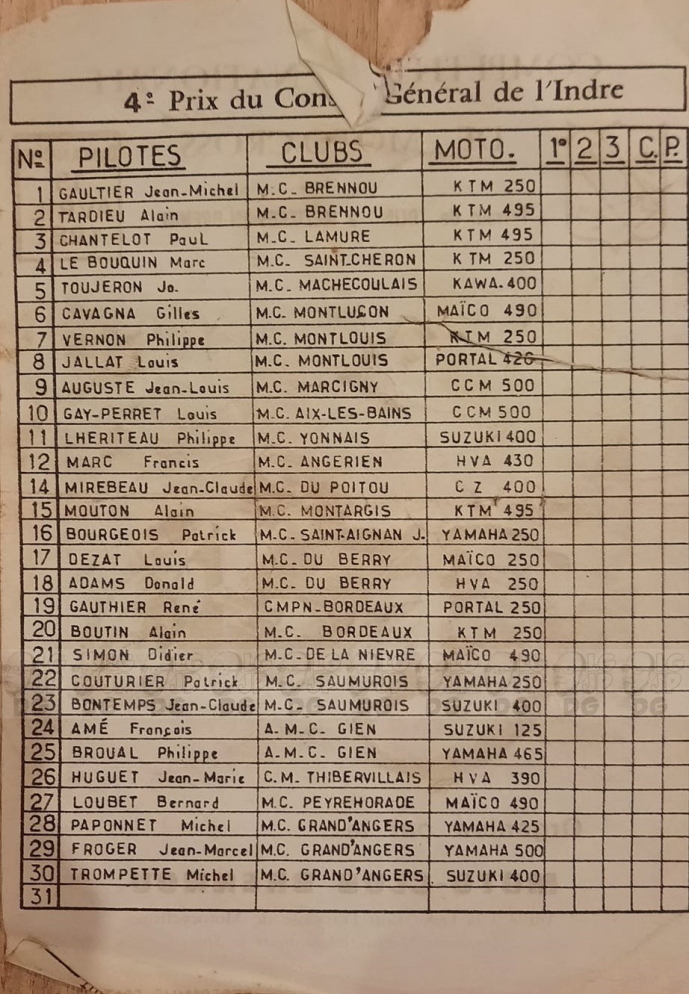 4e Prix du Cons Général de l'Indre
No PILOTES CLUBS MOTO. 1o 2 3 C. P.
1 GAULTIER Jean-Michel M.C. BRENNOU KTM 250
2 TARDIEU Alain M.C. BRENNOU KTM 495
3 CHANTELOT Paul M.C. LAMURE KTM 495
4 LE BOUQUIN Marc M.C. SAINT.CHERON KTM 250
5 TOUJERON Jo. M.C. MACHECOULAIS KAWA.400
6 CAVAGNA Gilles M.C. MONTLUÇON MAÏCO 490
7 VERNON Philippe M.C. MONTLOUIS KTM 250
8 JALLAT Louis M.C. MONTLOUIS PORTAL
9 AUGUSTE Jean-Louis M.C. MARCIGNY CCM 500
10 GAY-PERRET Louis M.C. AIX-LES-BAINS CCM 500
11 LHERITEAU Philippe M.C. YONNAIS SUZUKI 400
12 MARC Francis M.C. ANGERIEN HVA 430
14 MIREBEAU Jean-Claude M.C. DU POITOU CZ 400
15 MOUTON Alain M.C. MONTARGIS KTM 495
16 BOURGEOIS Patrick M.C. SAINT-AIGNAN J. YAMAHA 250
17 DEZAT Louis M.C. DU BERRY MAÏCO 250
18 ADAMS Donald M.C. DU BERRY HVA 250
19 GAUTHIER René CMPN-BORDEAUX PORTAL 250
20 BOUTIN Alain M.C. BORDEAUX KTM 250
21 SIMON Didier M.C. DE LA NIEVRE MAÏCO 490
22 COUTURIER Patrick M.C. SAUMUROIS YAMAHA 250
23 BONTEMPS Jean-Claude M.C. SAUMUROIS SUZUKI 400
24 AMÉ François A.M.C. GIEN SUZUKI 125
25 BROUAL Philippe A.M.C. GIEN YAMAHA 465
26 HUGUET Jean-Marie C.M. THIBERVILLAIS HVA 390
27 LOUBET Bernard M.C. PEYREHORADE MAÏCO 490
28 PAPONNET Michel M.C. GRAND'ANGERS YAMAHA 425
29 FROGER Jean-Marcel M.C. GRAND'ANGERS YAMAHA 500
30 TROMPETTE Michel M.C. GRAND'ANGERS SUZUKI 400
31